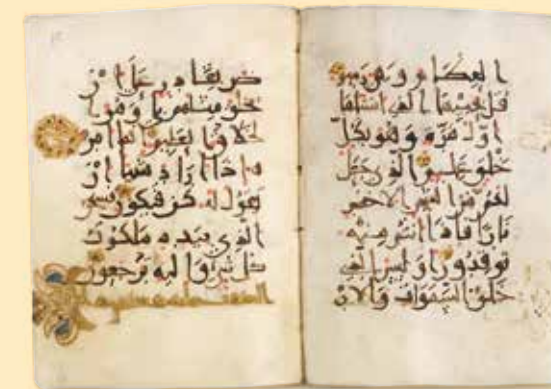 العظام وهى رميم
قل يحييها الذى انشاها
اول مرة وهو بكل
خلق عليم الذى جعل
لكم من الشجر الاخضر
نارا فاذا انتم منه
توقدون اوليس الذى
خلق السموات والار
ض بقدر على ان
يخلق مثلهم بلى وهو ا
لخلاق العليم انما امر
ه اذا اراد شيا ان
يقول له كن فيكون فسبحن
الذى بيده ملكوت
كل شى واليه ترجعون